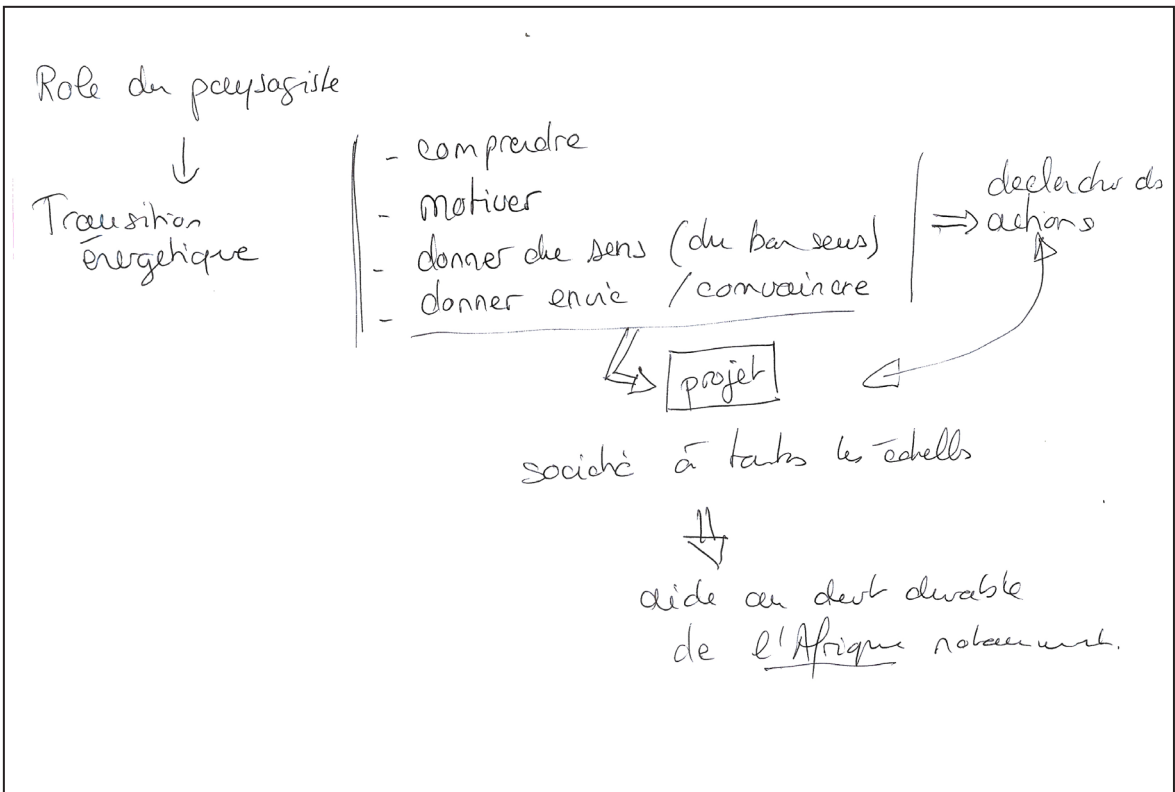 Role du paysagiste
Transition
énergétique
- comprendre
- motiver
- donner du sens (du bon sens)
- donner envie / convaincre
declencher des
actions
projet
société à toutes les échelles
aide au devt durable
de l'Afrique notamment.